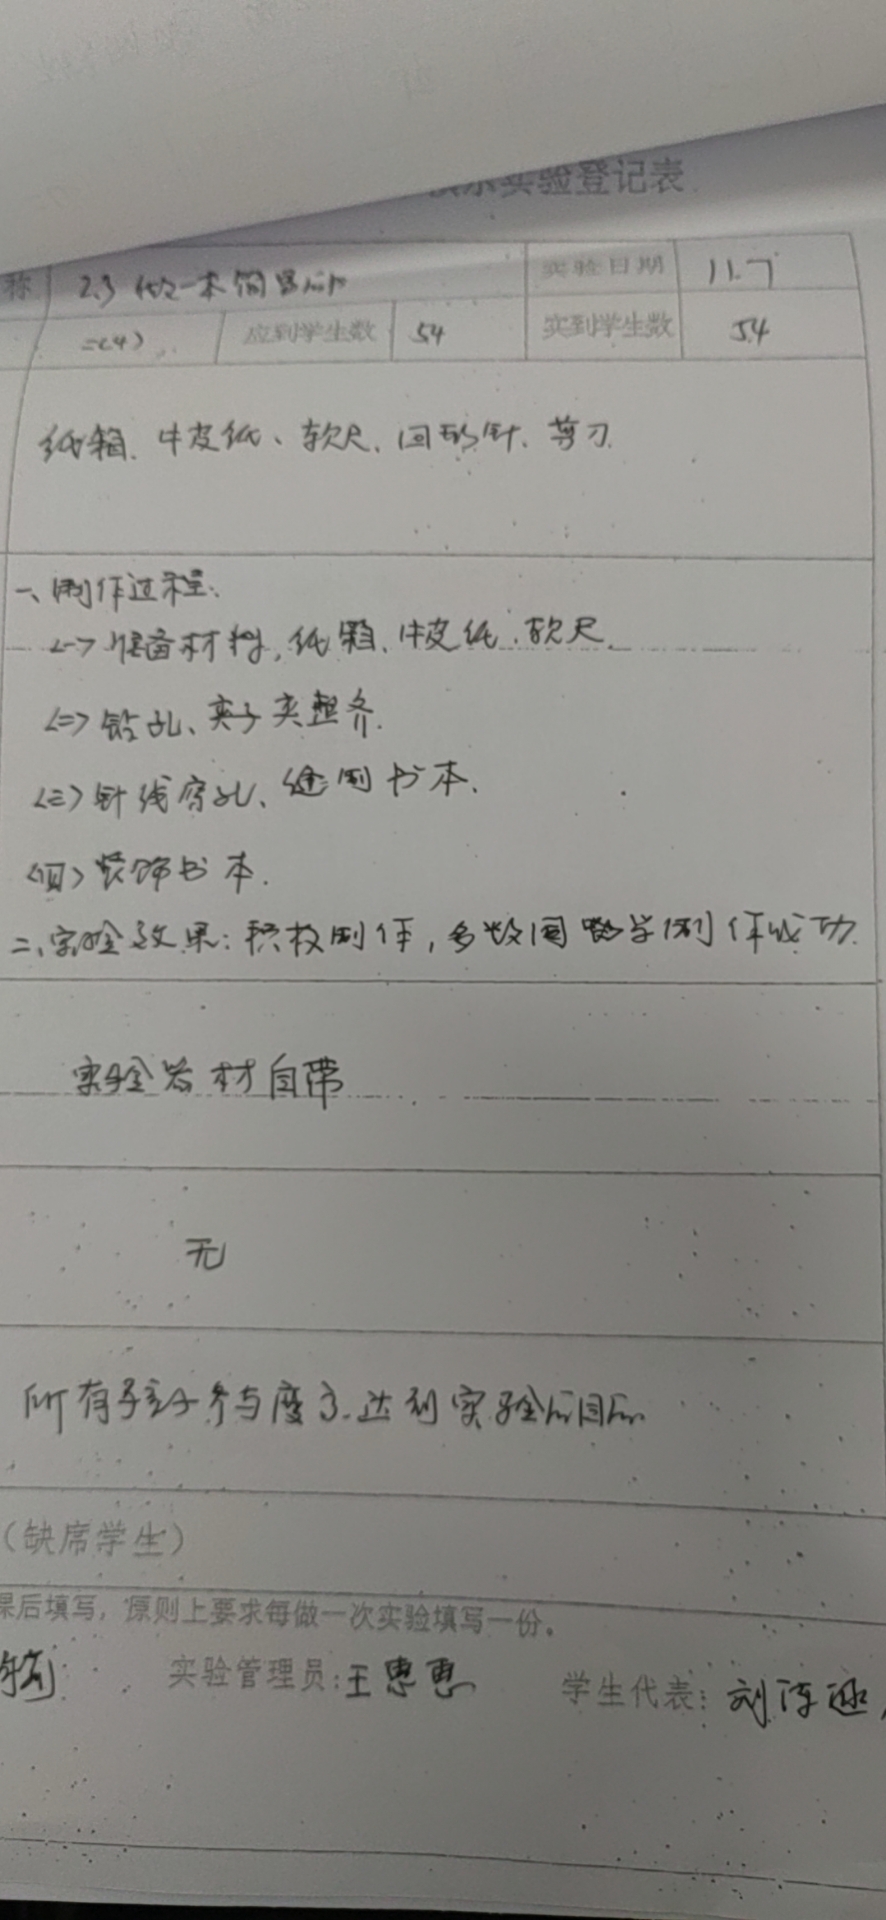 演示实验登记表
称 2.3 做一本 实验日期 11.7
二(4) 应到学生数 54 实到学生数 54
纸箱、牛皮纸、软尺、回形针、剪刀.
一、制作过程:
<一>准备材料,纸箱、牛皮纸、软尺.
<二>钻孔、夹子夹整齐.
<三>针线穿孔、缝制书本.
<四>装饰书本.
二、实验效果:积极制作,多数同学制作成功.
实验器材自带
无
所有孩子参与度高.达到实验的目的
(缺席学生)
课后填写,原则上要求每做一次实验填写一份。
实验管理员:王惠惠 学生代表:刘